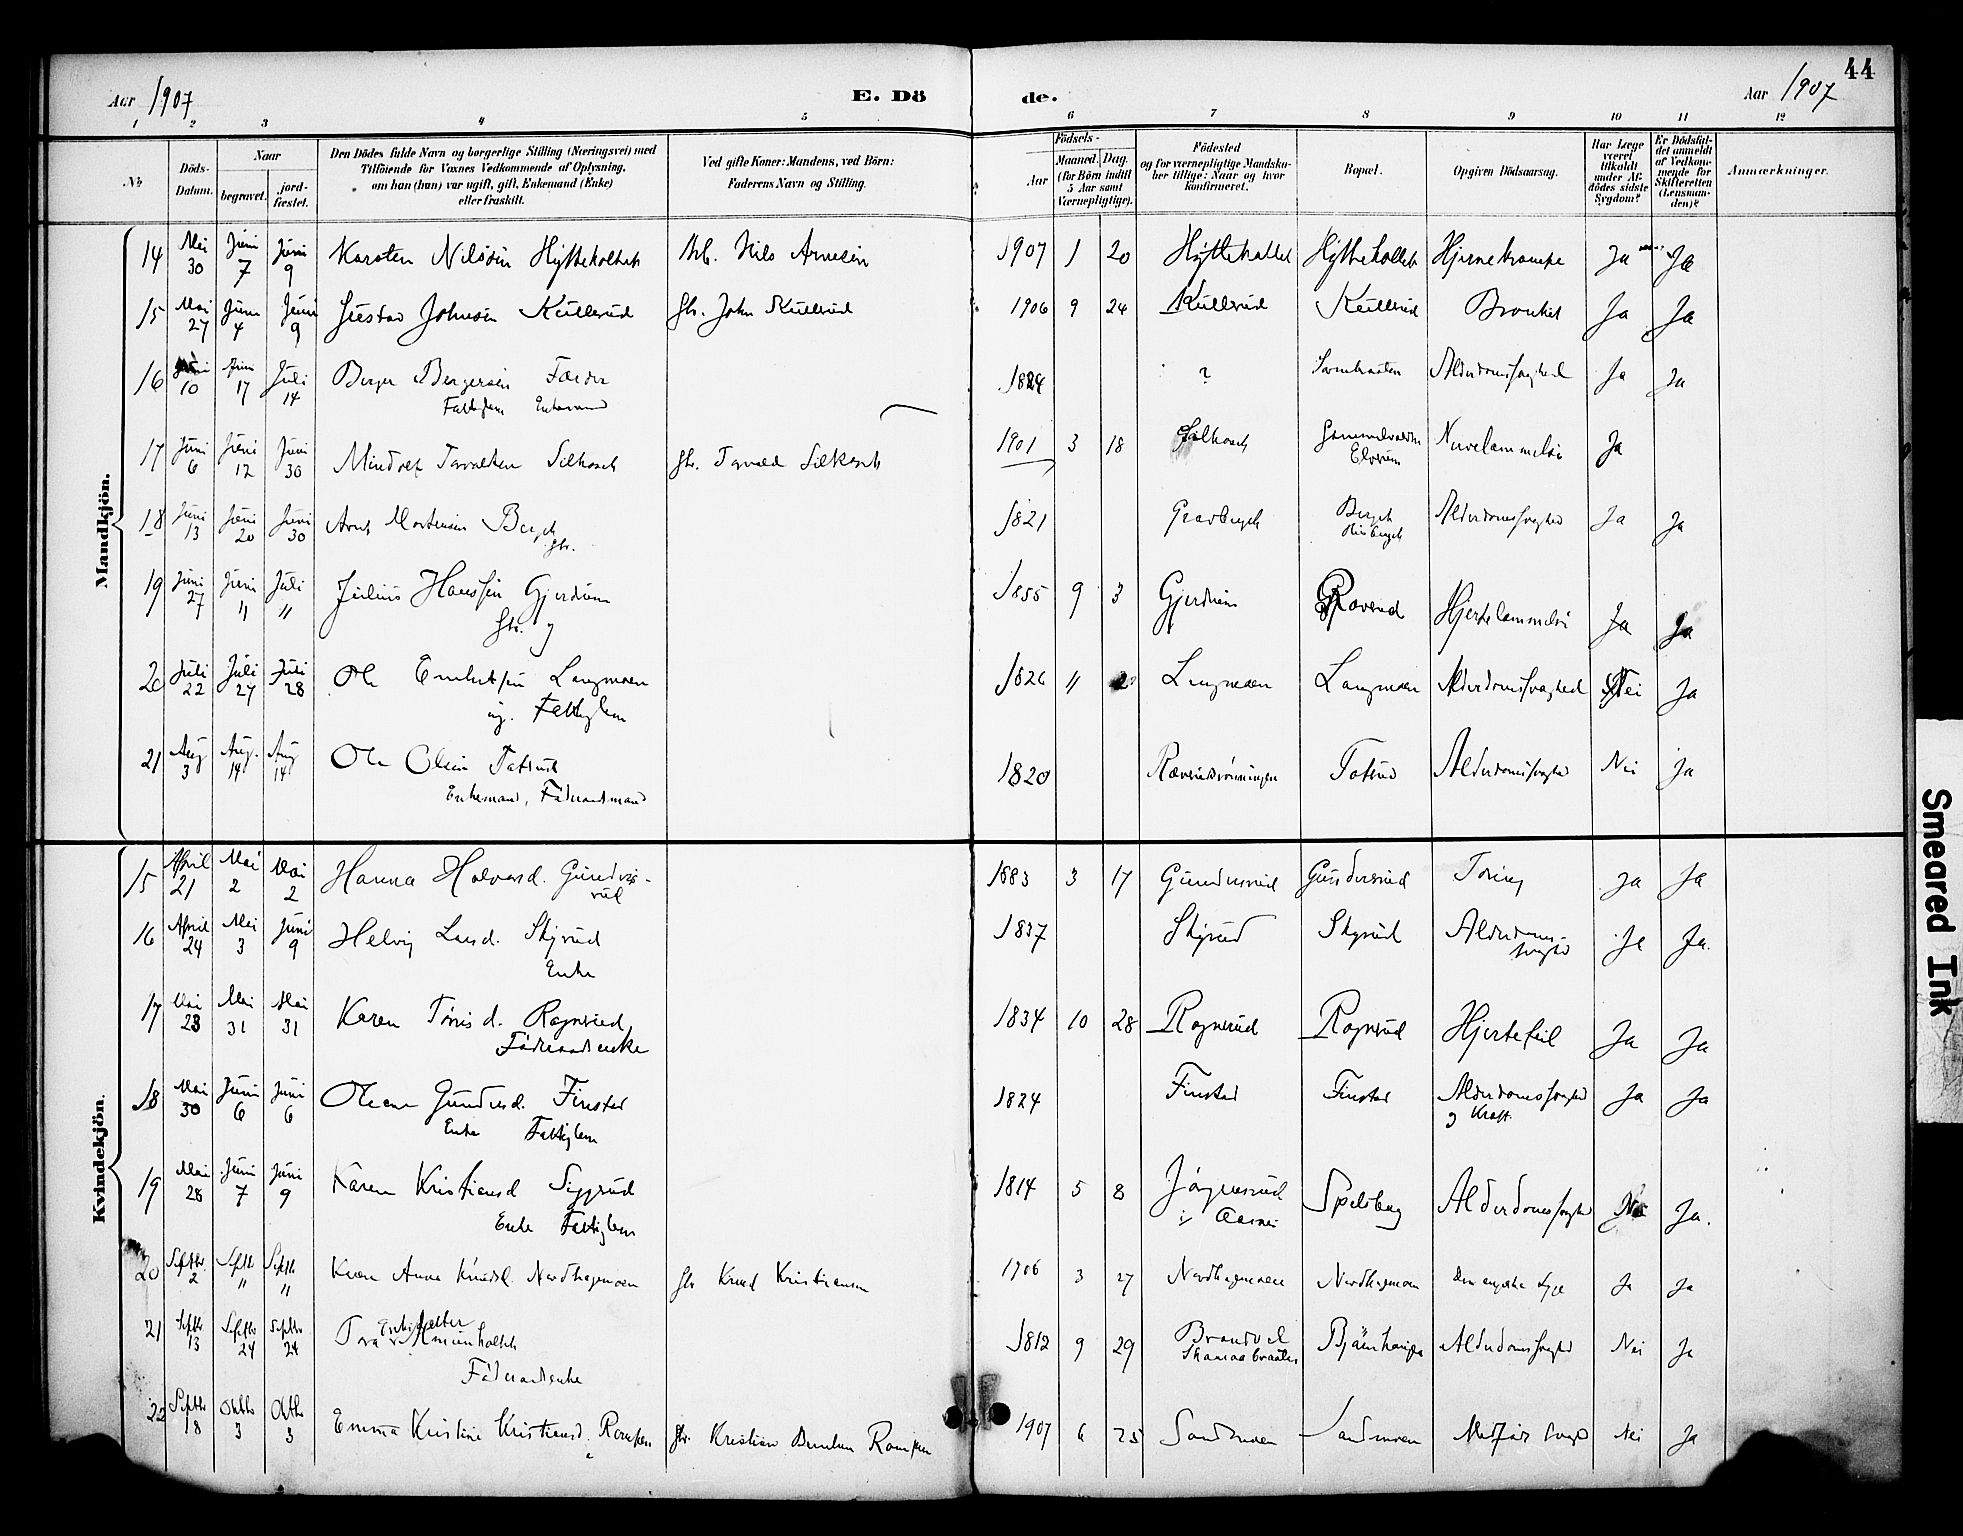 44
Aar 1907
E. Dö
de.
Aar 1907
1 2 3 4 5 6 7 8 9 10 11 12
No
Döds-
Datum.
Naar
begravet.
jord-
fæstet.
Den Dödes fulde Navn og borgerlige Stilling (Næringsvei) med
Tilföiende for Voxnes Vedkommende af Oplysning,
om han (hun) var ugift, gift, Enkemand (Enke)
eller fraskilt.
Ved gifte Koner: Mandens, ved Börn:
Faderens Navn og Stilling.
Födsels-
Aar
Maaned. Dag.
(for Börn indtil
5 Aar samt
Værnepligtige).
Födested
og for værnepligtige Mandska-
ber tillige: Naar og hvor
konfirmeret.
Bopæl.
Opgiven Dödsaarsag.
Har Læge
været
tilkaldt
under Af-
dödes sidste
Sygdom?
Er Dödsfal-
det anmeldt
af Vedkom-
mende for
Skifteretten
(Lensman-
den)?
Anmærkninger.
Mandkjön.
14 Mai 30 Juni 7 Juni 9 Karsten Nilssen Hytteholtet Nils Arnesen 1907 1 20 Hytteholtet Hytteholtet Hjernekrampe Ja Ja
15 Mai 27 Juni 4 Juni 9 Gustav Johnsen Kullerud Gbr. John Kullerud 1906 9 24 Kullerud Kullerud Bronkit Ja Ja
16 10 Juni 17 Juli 14 Berger Bergersen
Fattiglem Enkemand ? Alderdomssvaghed Ja Ja
17 Juni 6 Juni 12 Juni 30 Gbr. 1901 3 18 Elverum Ja
18 Juni 13 Juni 20 Juni 30 Arne Mortensen Bergeh
Gbr. 1821 Gravbergeh Bergeh Alderdomssvaghed Ja Ja
19 Juni 27 Juni 11 Juli 11 Julius Hanssen Gjerdrum
Gbr. 1855 9 3 Gjerdrum Hjertelammelse Ja Ja
20 Juli 22 Juli 27 Juli 28 Ole Langmoen
ug. Fattiglem 1826 11 Langmoen Langmoen Alderdomssvaghed Nei Ja
21 Aug 3 Aug. 14 Aug 14 Ole Olsen Tatrud
Enkemand, Föderaadsmand 1820 Tatrud Alderdomssvaghed Nei Ja
Kvindekjön.
15 April 21 Mai 2 Mai 2 Hanna Halvorsd. Gunders-
rud 1883 3 17 Gundersrud Gundersrud Tæring Ja Ja
16 April 24 Mai 3 Juni 9 Helvig Larsd. Skyrud
Enke 1837 Skyrud Skyrud Alderdoms-
svaghed Ja Ja.
17 Mai 23 Mai 31 Mai 31 Karen Tørrisd. Rognerud,
Föderaadsenke 1834 10 28 Rognerud Rognerud Hjertefeil Ja Ja
18 Mai 30 Juni 6 Juni 6 Oleane Gundersd. Finstad
Enke Fattiglem 1824 Finstad Finstad Alderdomssvaghed
og Kræft Ja Ja
19 Mai 28 Juni 7 Juni 9 Karen Kristiansd Siggerud
Enke Fattiglem 1814 5 8 Jörgensrud
i Aasnes Spetsberg Alderdomssvaghed Nei Ja.
20 Septbr. 2 Septbr 11 Septbr. 11 Karen Anna Knudsd. Nordhagemoen Gbr Knud Kristiansen 1906 3 27 Nordhagemoen Nordhagemoen Den engelske Syge Ja Ja
21 Septbr 13 Septbr 24 Septbr 24
Föderaadsenke 1812 9 29 Brandval Alderdomssvaghed Nei Ja
22 Septbr 18 Oktbr 3 Oktbr 3 Emma Kristine Kristiansd. Rompen Gbr. Kristian Rompen 1907 6 25 Sandmoen Sandmoen Medfødt Svagh Nei Ja
Smeared Ink